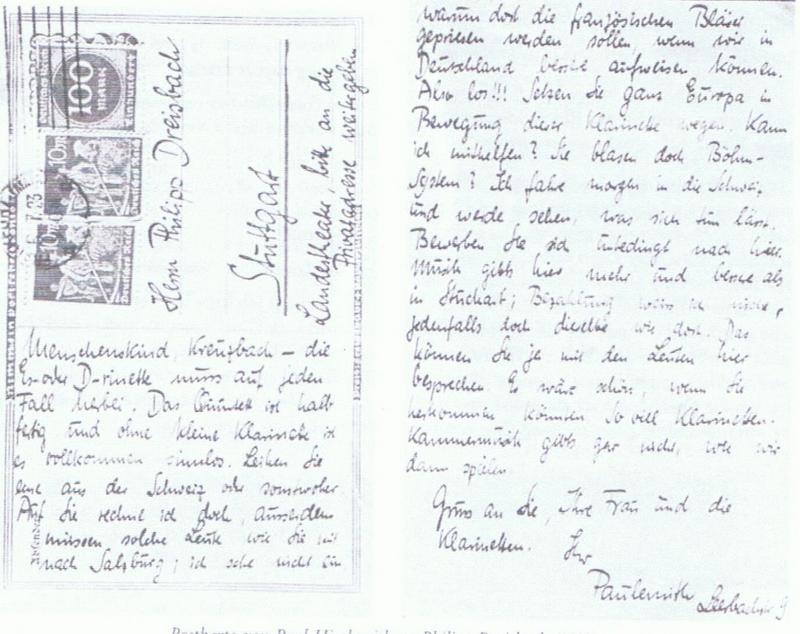 100
MARK
Herrn Philipp Dreisbach
Stuttgart
Landestheater, bitte an die
Privatadresse weitergeben
Menschenskind, Kreuzbach – die
Es- oder D-rinette muss auf jeden
Fall herbei. Das Quintett ist halb
fertig und ohne kleine Klarinette ist
es vollkommen sinnlos. Leihen Sie
eine aus der Schweiz oder sonstwoher.
Auf Sie rechne ich doch, ausserdem
müssen solche Leute wie Sie mit
nach Salzburg; ich sehe nicht ein
warum dort die französischen Bläser
gepriesen werden sollen, wenn wir in
Deutschland bessre aufweisen können.
Also los!!! Setzen Sie ganz Europa in
Bewegung dieser Klarinette wegen. Kann
ich mithelfen? Sie blasen doch Böhm-
System? Ich fahre morgen in die Schweiz
und werde sehen, was sich tun lässt.
Bewerben Sie sich unbedingt nach hier.
Musik gibts hier mehr und bessre als
in Stuchart; Bezahlung weiss ich nicht,
jedenfalls doch dieselbe wie dort. Das
können Sie ja mit den Leuten hier
besprechen. Es wär schön, wenn Sie
herkommen könnten. So viel Klarinetten-
Kammermusik gibts gar nicht, wie wir
dann spielen.
Gruss an Sie, Ihre Frau und die
Klarinetten. Ihr
Paulemith
9